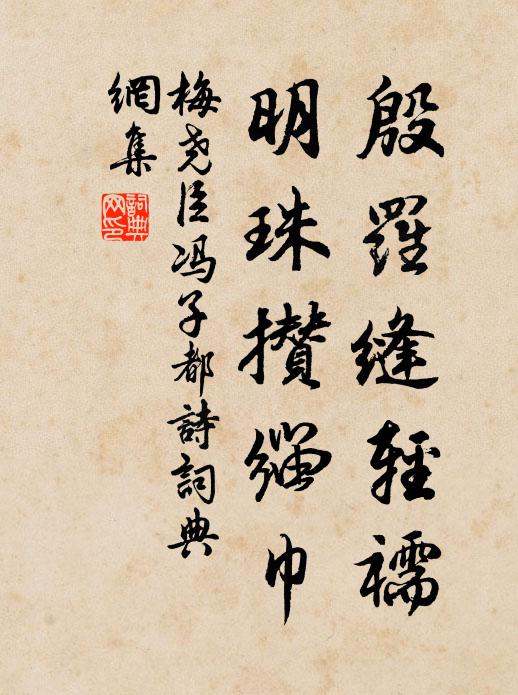 殷羅縫輕襦
明珠攢繩巾
梅尧臣冯子都詩詞典
網集
詞典
网印